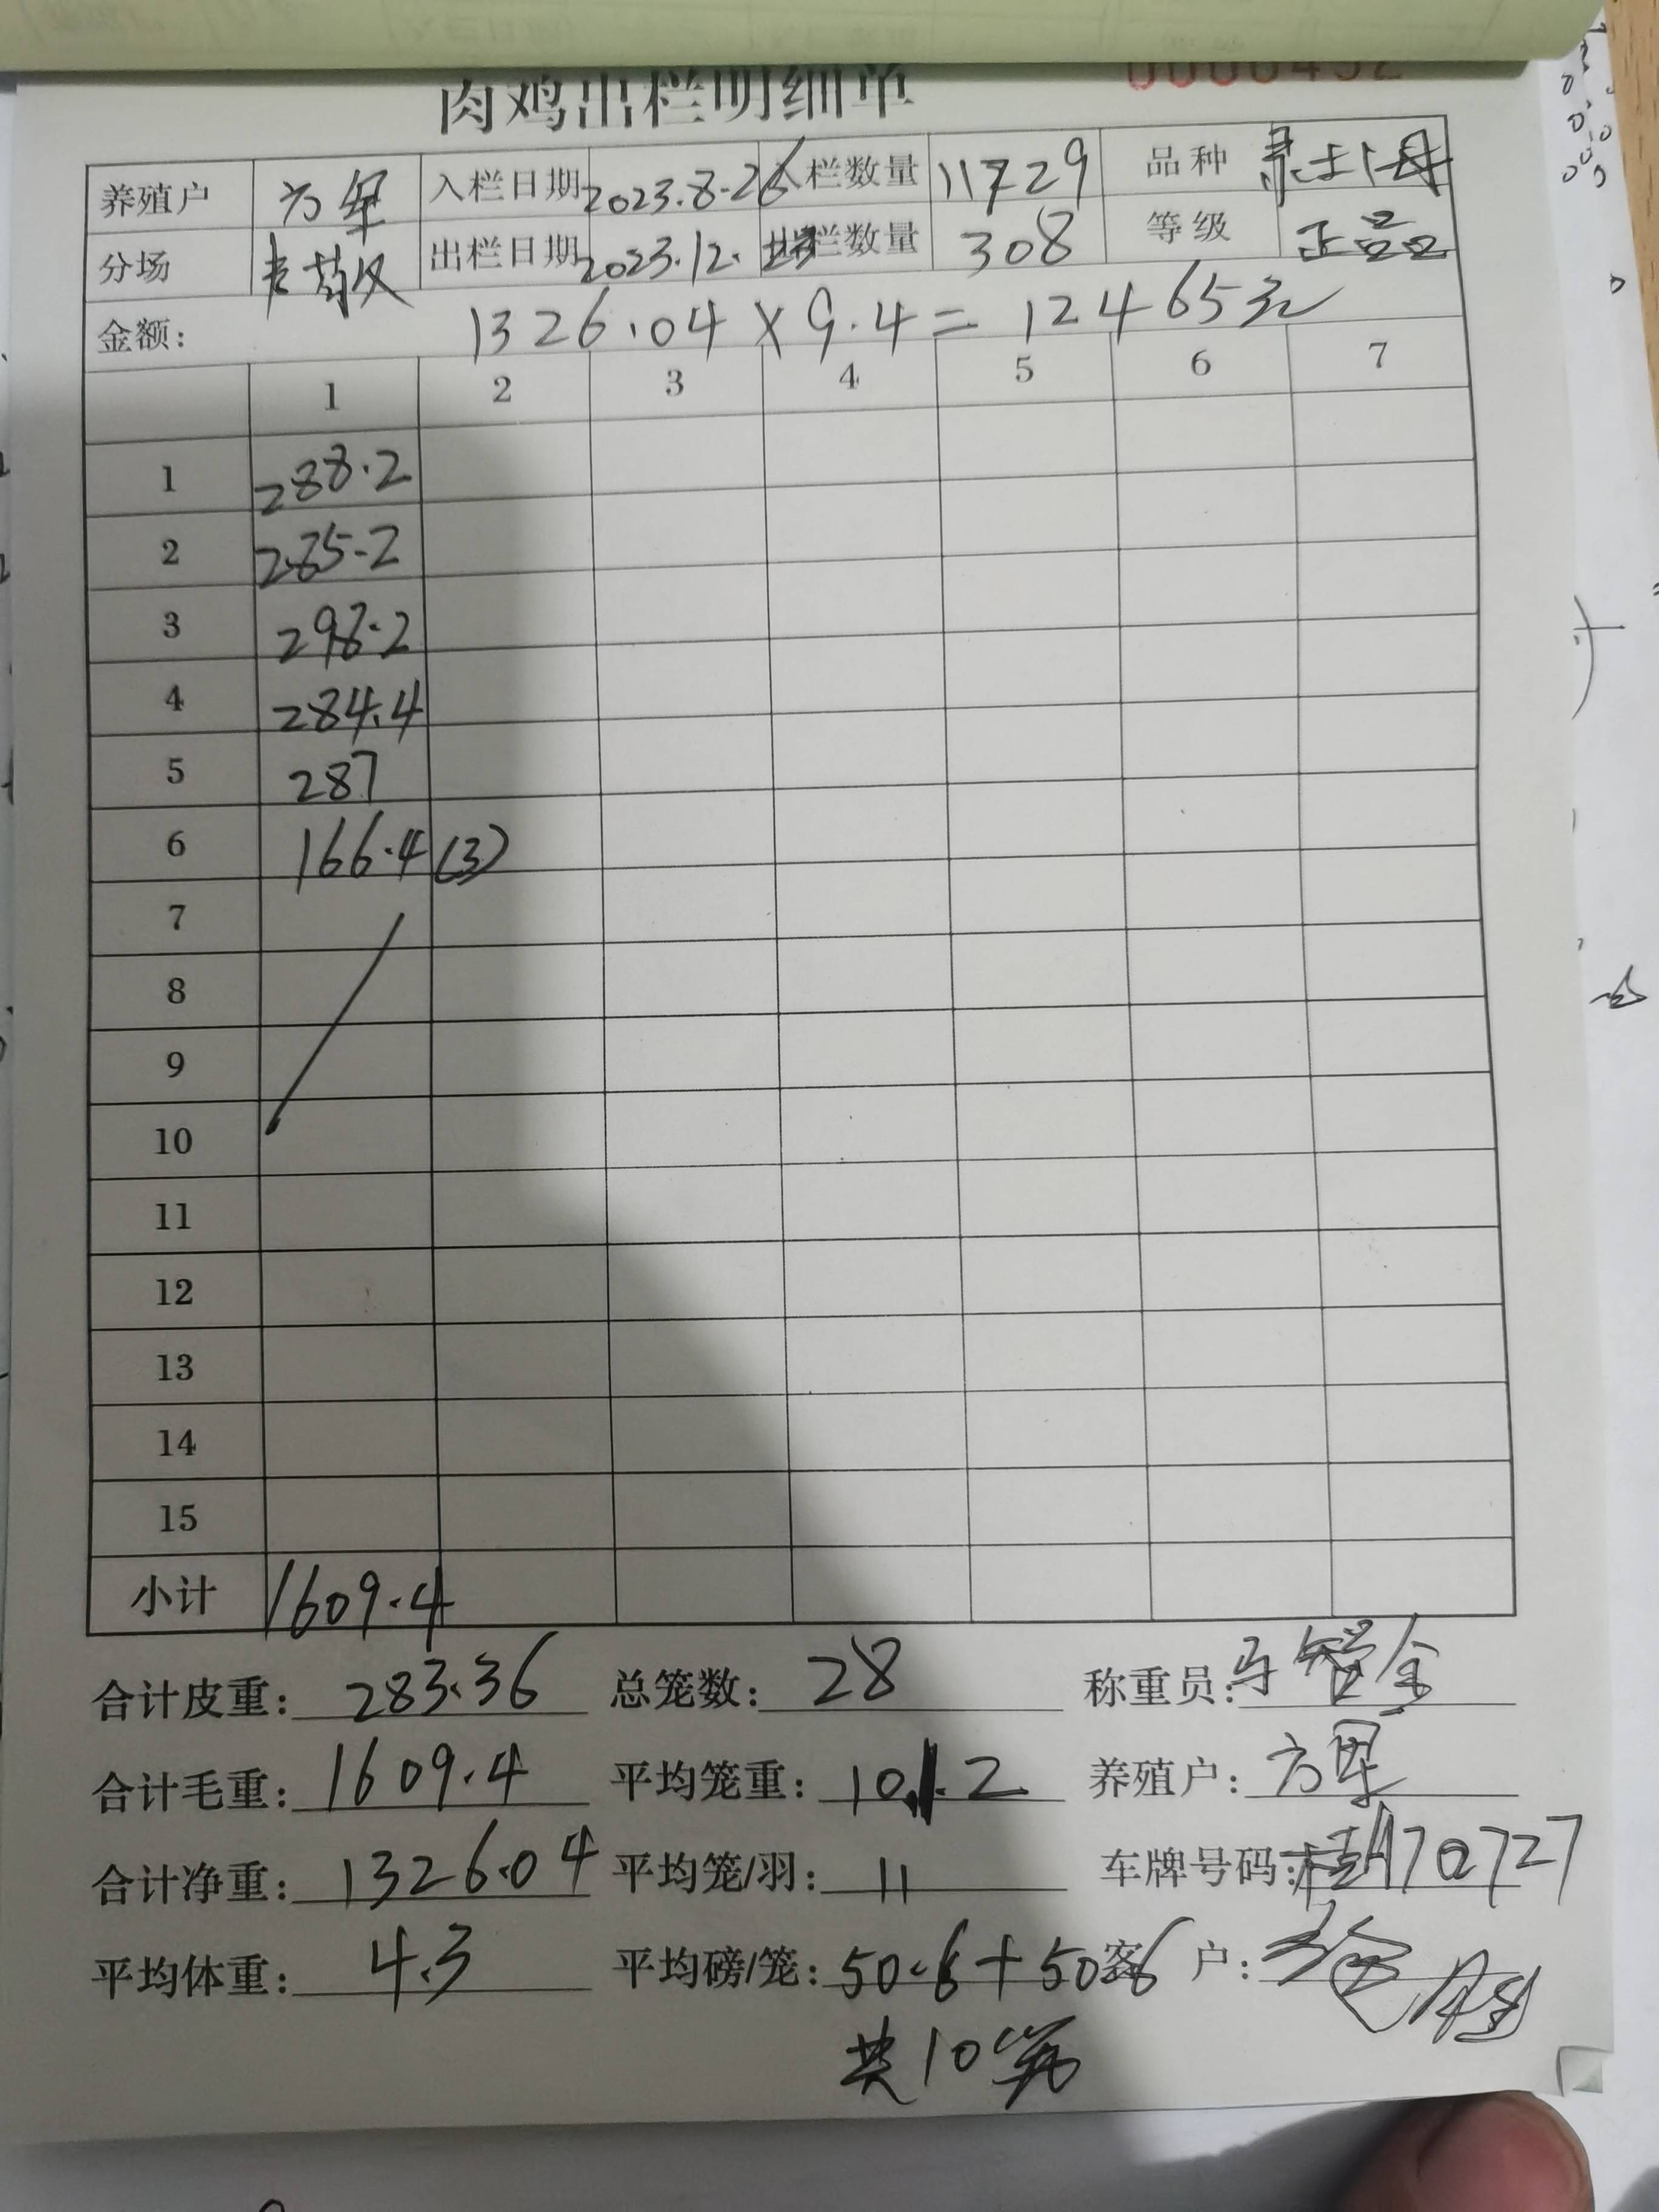 肉鸡出栏明细单 0000452
养殖户 方军 入栏日期 2023.8.26 入栏数量 11729 品种 土1母
分场 出栏日期 2023.12. 出栏数量 308 等级 正品
金额: 1326.04×9.4=12465元
1 2 3 4 5 6 7
1 288.2
2 285.2
3 298.2
4 284.4
5 287
6 166.4 (3)
7
8
9
10
11
12
13
14
15
小计 1609.4
合计皮重: 283.36 总笼数: 28 称重员:
合计毛重: 1609.4 平均笼重: 10.12 养殖户: 方军
合计净重: 1326.04 平均笼/羽: 11 车牌号码: 桂A70727
平均体重: 4.3 平均磅/笼: 50.6+50.6 客 户:
共10笼